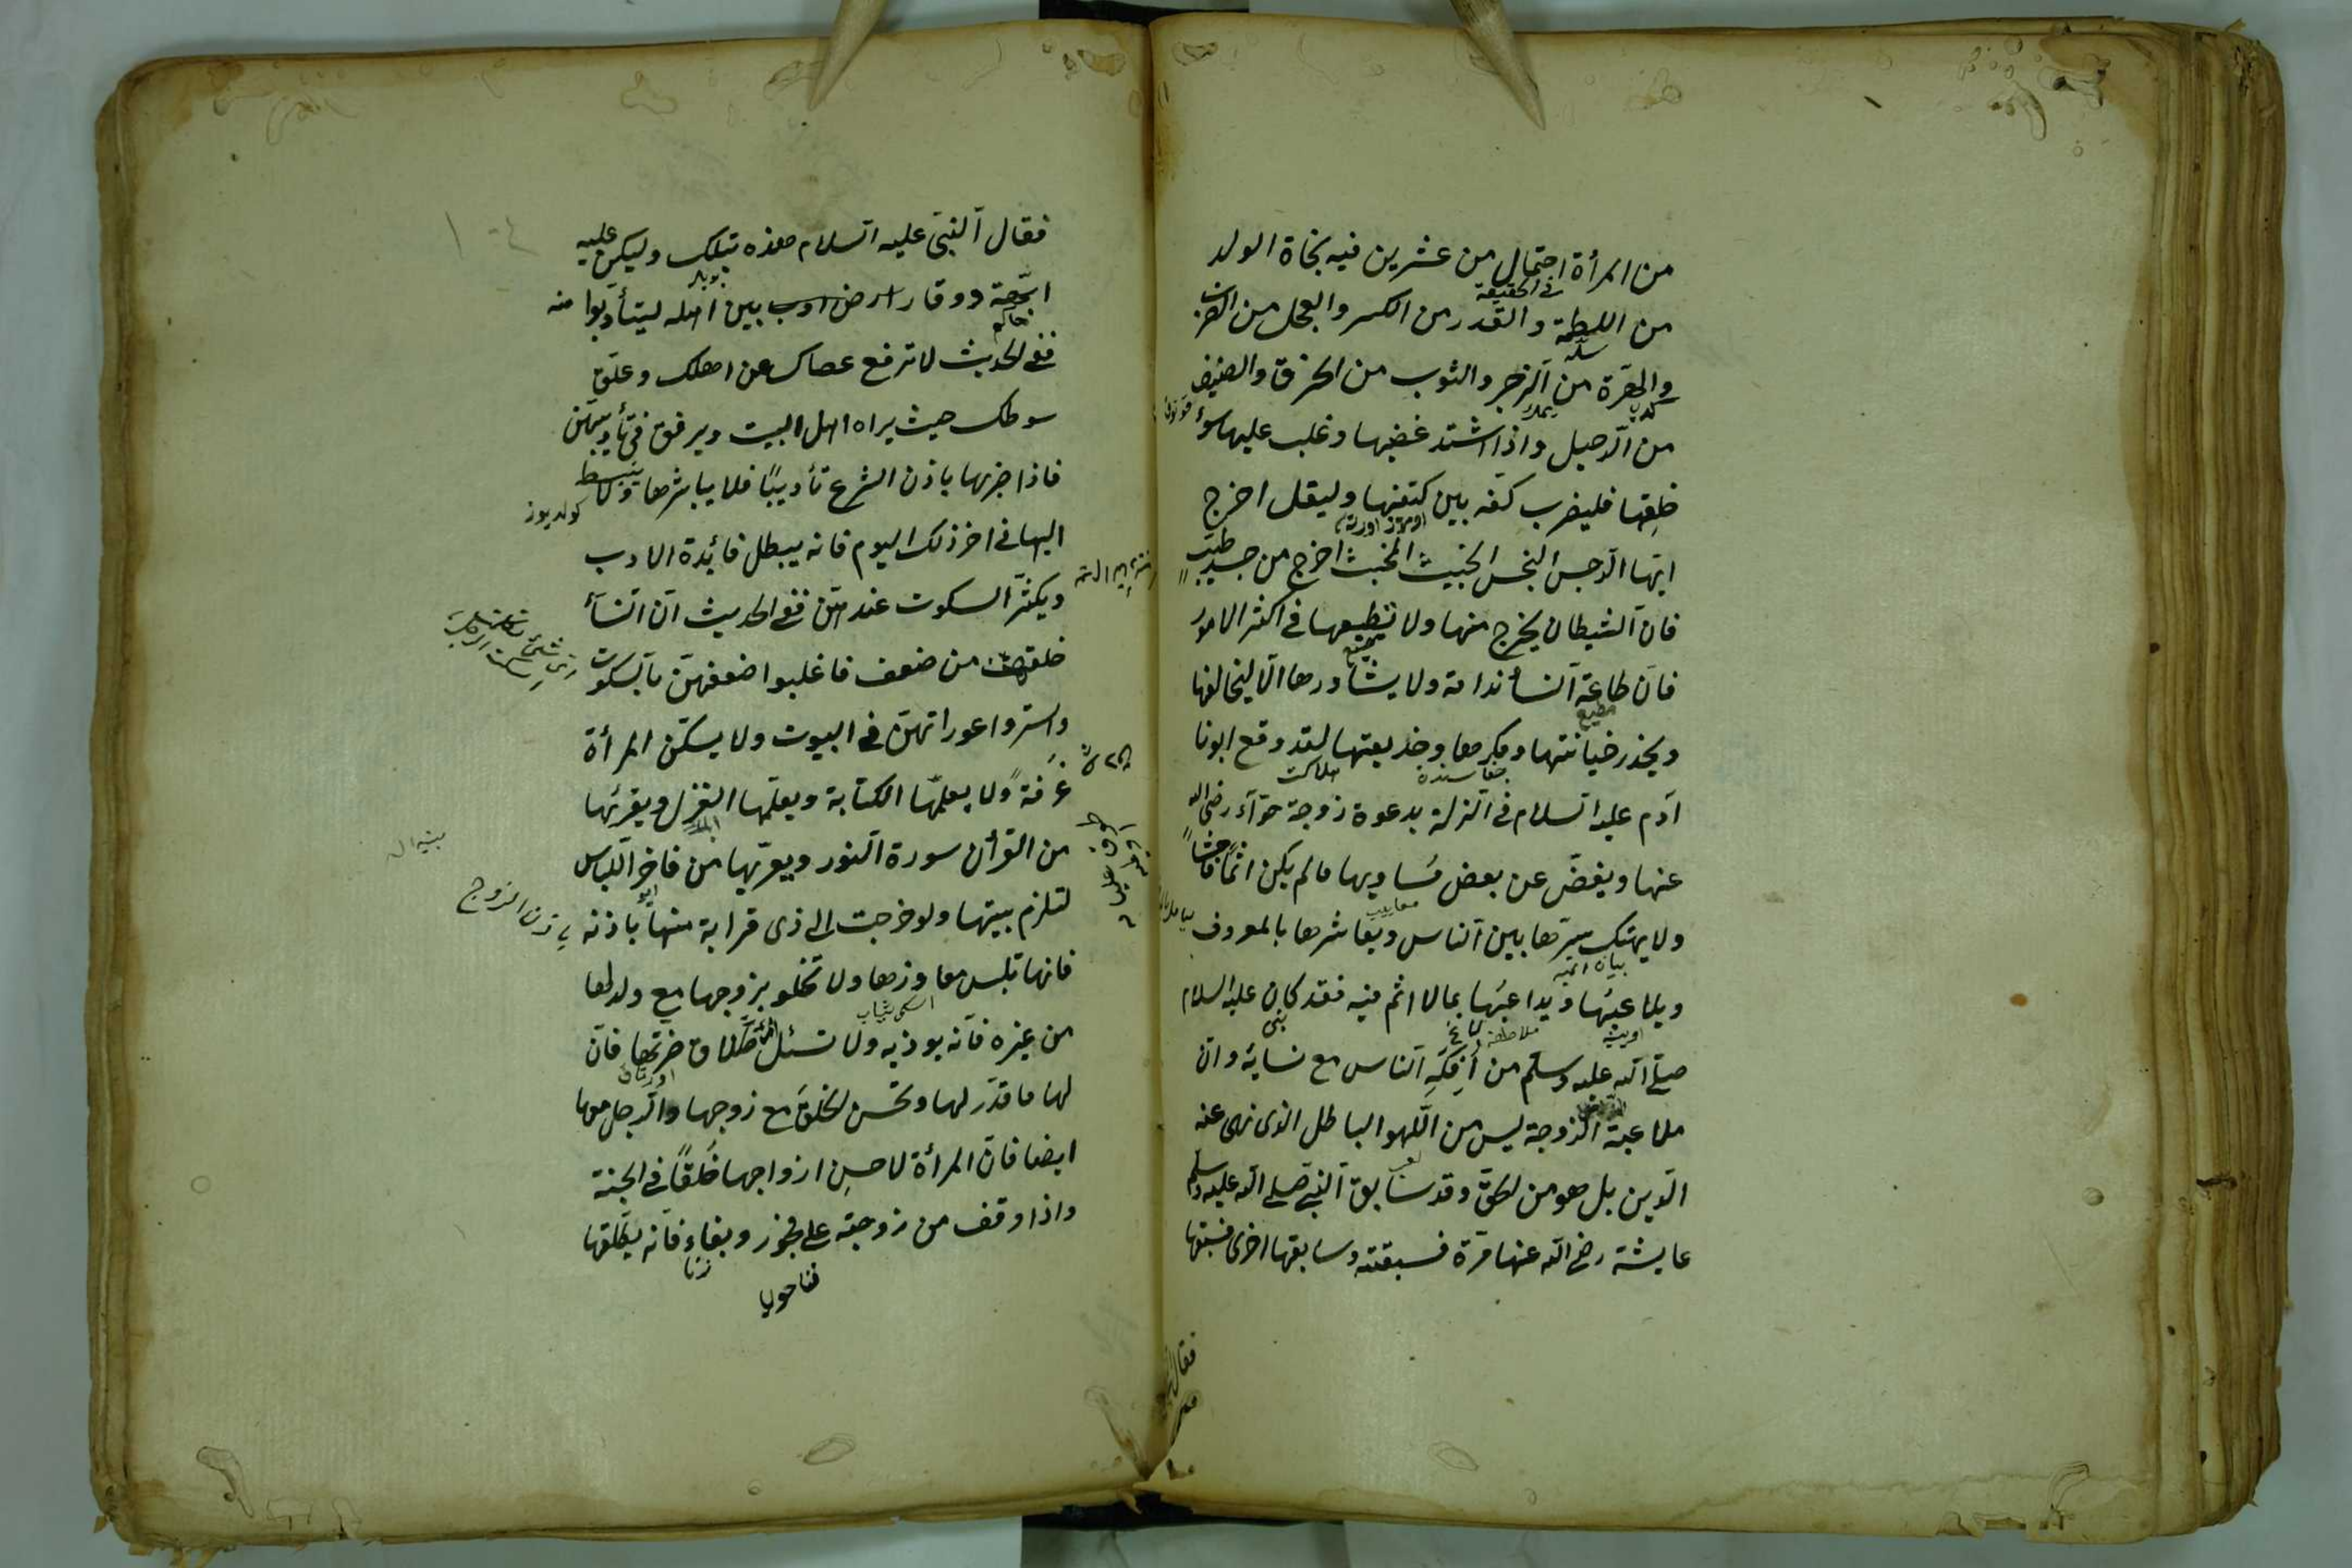 من المرأة احتمال من عشرين فيه نجاة الولد
من اللطمة والقدر من الكسر والعجل من الضرب
والهرة من الزجر والثوب من الخرق والضيف
من الرحيل واذا اشتد غضبها وغلب عليها سوء
خلقها فليضرب كفه بين كتفيها وليقل اخرج
ايها الرجس النجس الخبيث المخبث اخرج من جسد طيب
فان الشيطان يخرج منها ولا يطيعها في اكثر الامور
فان طاعة النساء ندامة ولا يشاورها الا ليخالفها
ويحذر خيانتها ومكرها وخديعتها لقد وقع ابونا
آدم عليه السلام في الزلة بدعوة زوجة حواء رضي الله
عنها ويغض عن بعض مساويها ما لم يكن اثما فاحشا
ولا يهتك سترها بين الناس ويعاشرها بالمعروف
ويلاعبها ويداعبها بما لا اثم فيه فقد كان عليه السلام
صلى الله عليه وسلم من أفكه الناس مع نسائه وان
ملاعبة الزوجة ليس من اللهو الباطل الذى نهى عنه
الدين بل هو من الحق وقد سابق النبي صلى الله عليه وسلم
عايشة رضي الله عنها مرة فسبقته وسابقها اخرى فسبقها
فقال
فقال النبي عليه السلام هذه بتلك وليكن عليه
ابهة ووقار ارض ادب بين اهله ليتأدبوا منه
ففي الحديث لا ترفع عصاك عن اهلك وعلق
سوطك حيث يراه اهل البيت ويرفق في تأديبهن
فاذا ضربها باذن الشرع تأديبا فلا يباشرها ولا ينبسط
اليها في اخر ذلك اليوم فانه يبطل فائدة الادب
ويكثر السكوت عندهن ففي الحديث ان النساء
خلقهن من ضعف فاغلبوا ضعفهن بالسكوت
واستروا عوراتهن في البيوت ولا يسكن المرأة
غرفة ولا يعلمها الكتابة ويعلمها الغزل ويقرئها
من القرأن سورة النور ويعريها من فاخر اللباس
لتلزم بيتها ولو خرجت الى ذى قرابة منها باذنه
فانها تلبس معاوزها ولا تخلو بزوجها مع ولد لها
من غيره فانه يوذيه ولا تسئل المرأة طلاق ضرتها فان
لها ما قدر لها وتحسن الخلق مع زوجها والرجل معها
ايضا فان المرأة لاحسن ازواجها خلقا في الجنة
واذا وقف من زوجته على فجور وبغاء فانه يطلقها
زنا